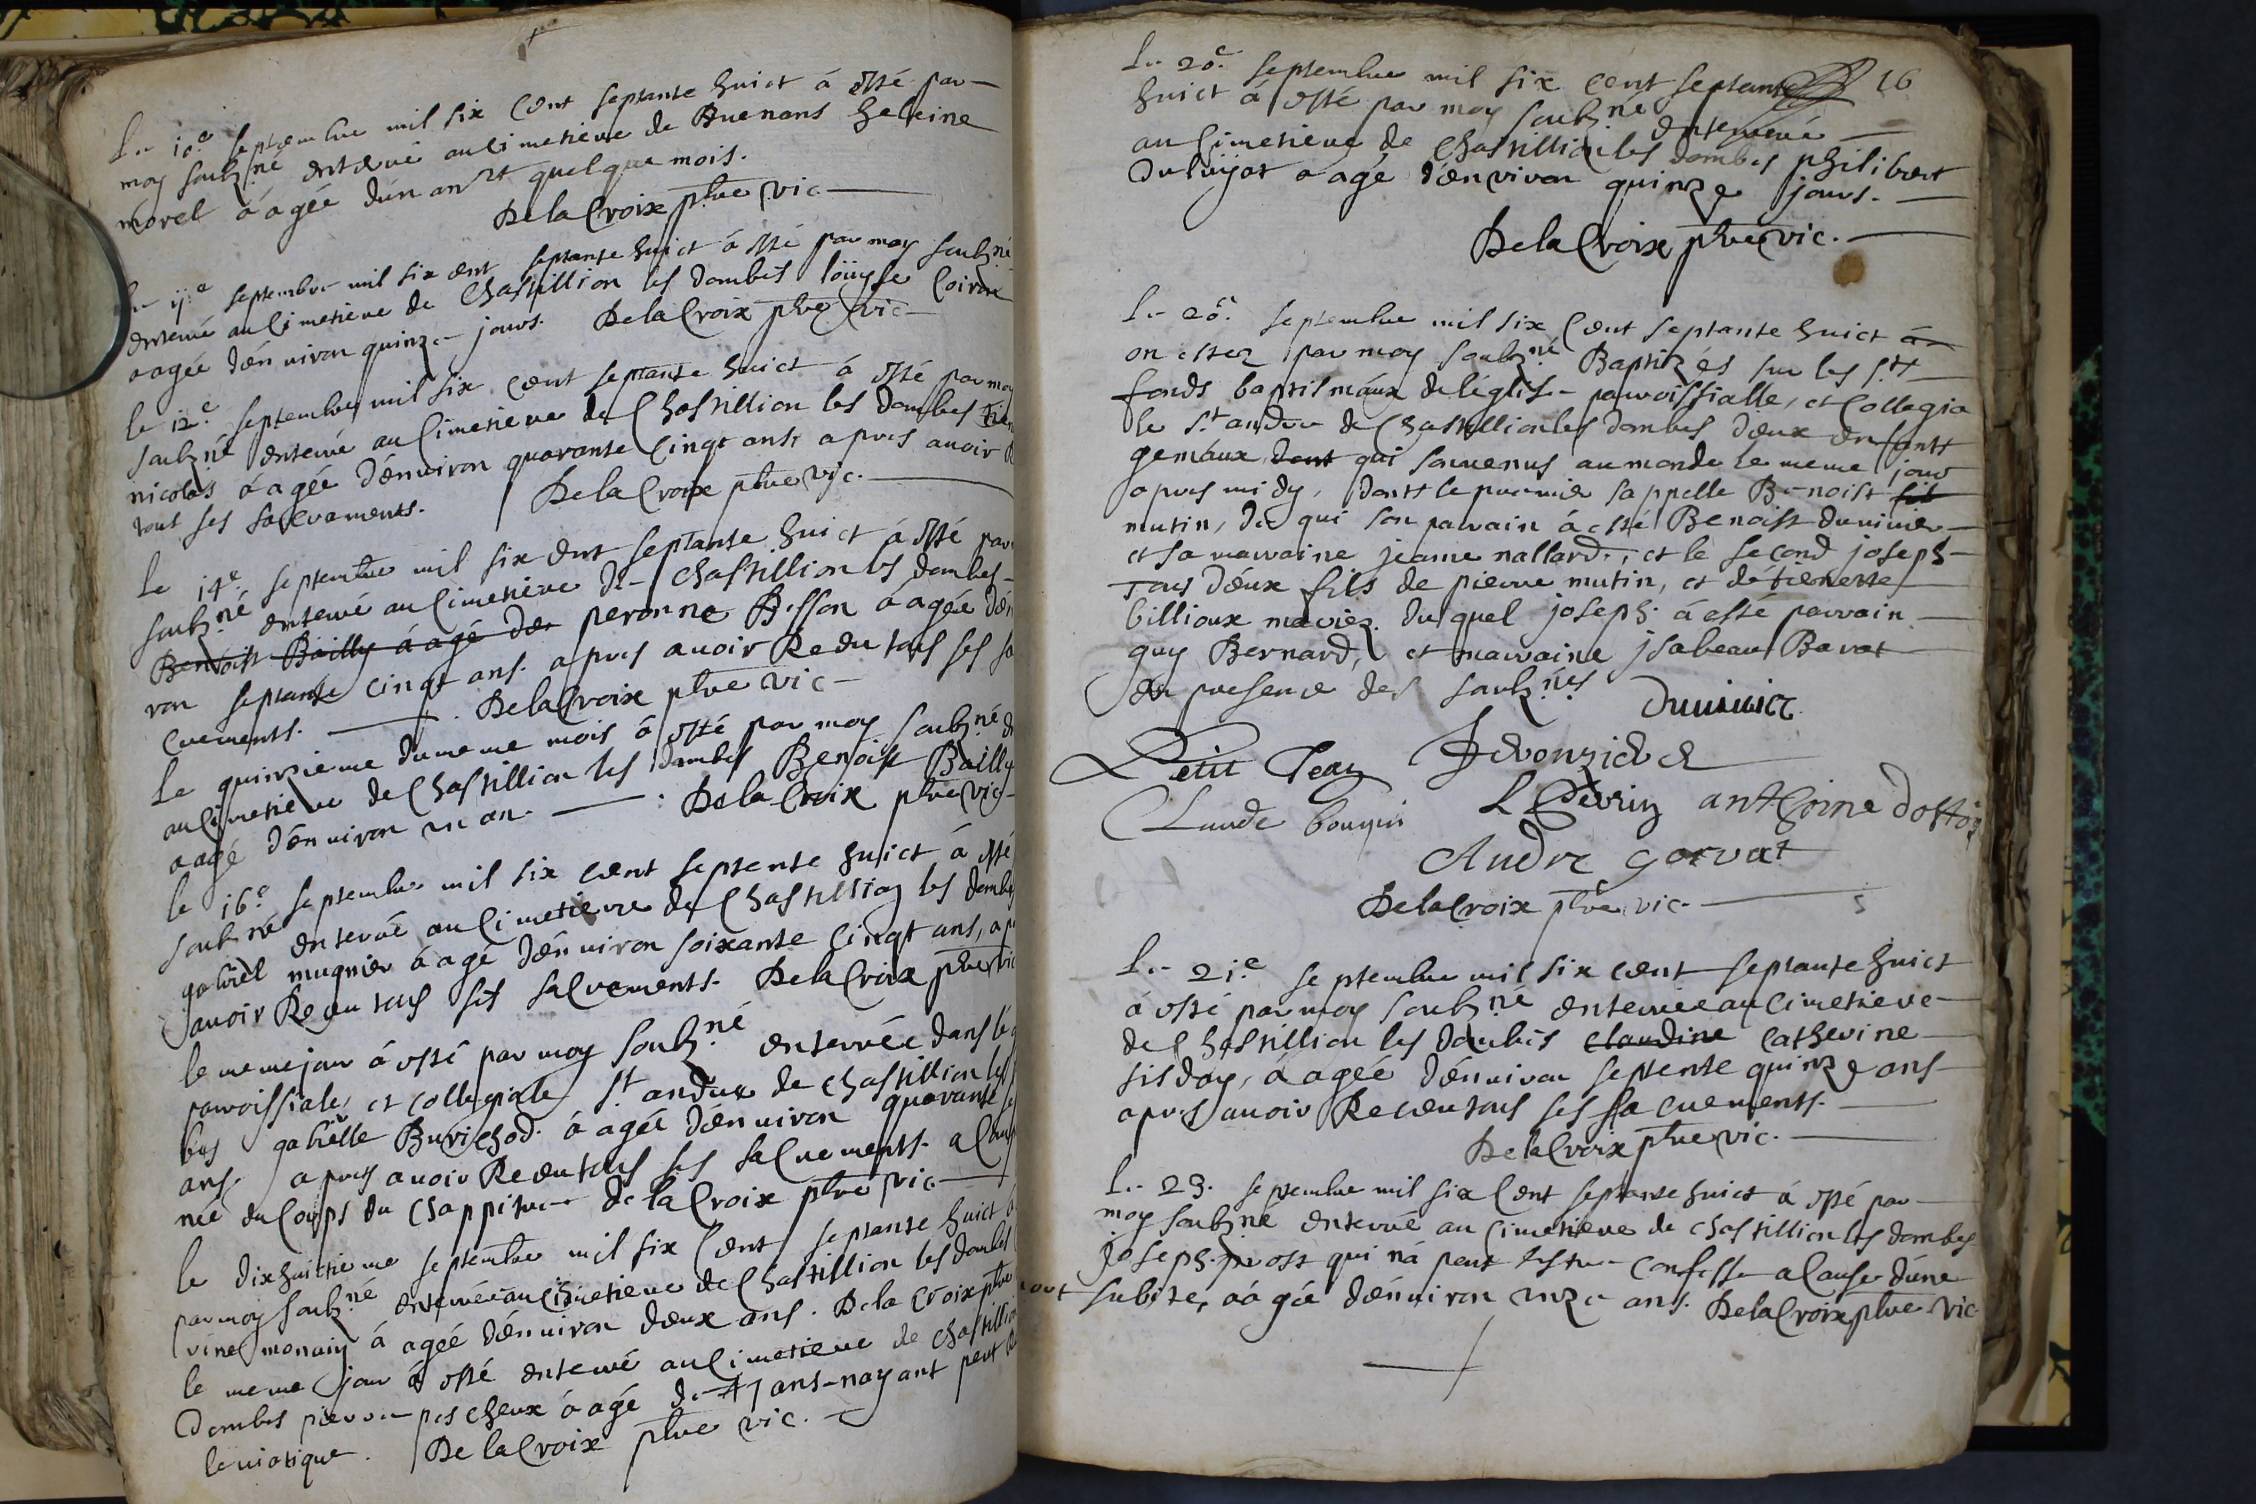 Le 10e septembre mil six cent septante huict á esté par
moy soubzné enterré au cimetiere de Buenans heleine
morel á agée dun an et quelque mois.
De la Croix pbre vic
septembre mil six cent septante huict á esté par moy soubzné
enterré au cimetiere de Chastillion les dombes loüyse
aagée dénviron quinze jours. De la Croix pbre vic
le 12e septembre mil six cent septante huict á esté par moy
soubzné enterré au cimetiere de Chastillion les dombes
nicolas á agée dénviron quarante cingt ans apres avoir
tout ses sacrements. De la Croix pbre vic.
Le 14e septembre mil six cent septante huict á esté par
soubzné enterré au cimetiere de chastillion les dombes
Benoist Bailly á agé den peronne á agée dén
ron septante cingt ans. apres avoir Recu tous ses sa
crements. De la Croix pbre vic
Le quinzieme du meme mois á esté par moy soubzné
au cimetiere de Chastillion les dombes Benoist Bailly
aagé dénviron un an. De la Croix pbre vic
le 16e septembre mil six cent septente huict á esté
soubzné enterré au cimetierre de Chastillion les domb
gabriel mugnier á agé dénviron soixante cingt ans, ap
avoir Recu tous ses sacrements. De la Croix pbre vic
le meme jour á esté par moy soubzné enterrée dans lé
parroissiale, et collegiale St andre de chastillion les
bes gabrielle Burichod á agée dénviron quarante
ans. apres avoir Recu tous ses sacrements. a
née du Corps du Chappitre de la Croix pbre vic
le dixhuictieme septembre mil six cent septante huict á
par moy soubzné enterrée au cimetiere de Chastillion les dombes
rine á agée dénviron deux ans. De la Croix pbre
le meme jour á esté enterré au cimetiere de chastillion
Dombes pierre pescheux á agé de ans nayant peut
le viatique. De la Croix pbre vic.
16
Le 20e septembre mil six cent septante
huict á esté par moy soubzné enterré
au cimetiere de Chastillion les dombes philibert
aagé dénviron quinze jours.
De la Croix pbre vic.
Le 20e septembre mil six Cent septante huict á
on estez par moy soubzné Baptizés sur les Sts
fonds baptismáux de léglise parroissialle, et Collegia
le St andre de Chastillion les dombes deux enfants
gemáux, dont qui sont venus au monde le meme jour
apres midy, dont le premier sappelle Benoist fils
mutin, de qui son parrain á esté Benoist duvivier
et sa marraine jeanne nallard, et le second joseph
Tous déux fils de pierre mutin, et détienette
billioux mariez. duquel joseph á esté parrain
guy Bernard, et marraine jsabeau Barat
én presence des soubznés
Duvivier
Petit Jean
Claude bouquin
anthoine
Andre gorvat
De la Croix pbre vic.
Le 21e septembre mil six cent septante huict
á esté par moy soubzné enterrée au cimetiere
de Chastillion les dombes claudine Catherine
á agée dénviron septente quinze ans
apres avoir Receu tous ses sacrements.
De la Croix pbre vic.
Le 23. septembre mil six Cent septante huict á esté par
moy soubzné enterré au cimetiere de chastillion les dombes
Joseph prost qui ná peut estre confesse a Cause dúne
mort subite, aágé dénviron unze ans. De la Croix pbre vic